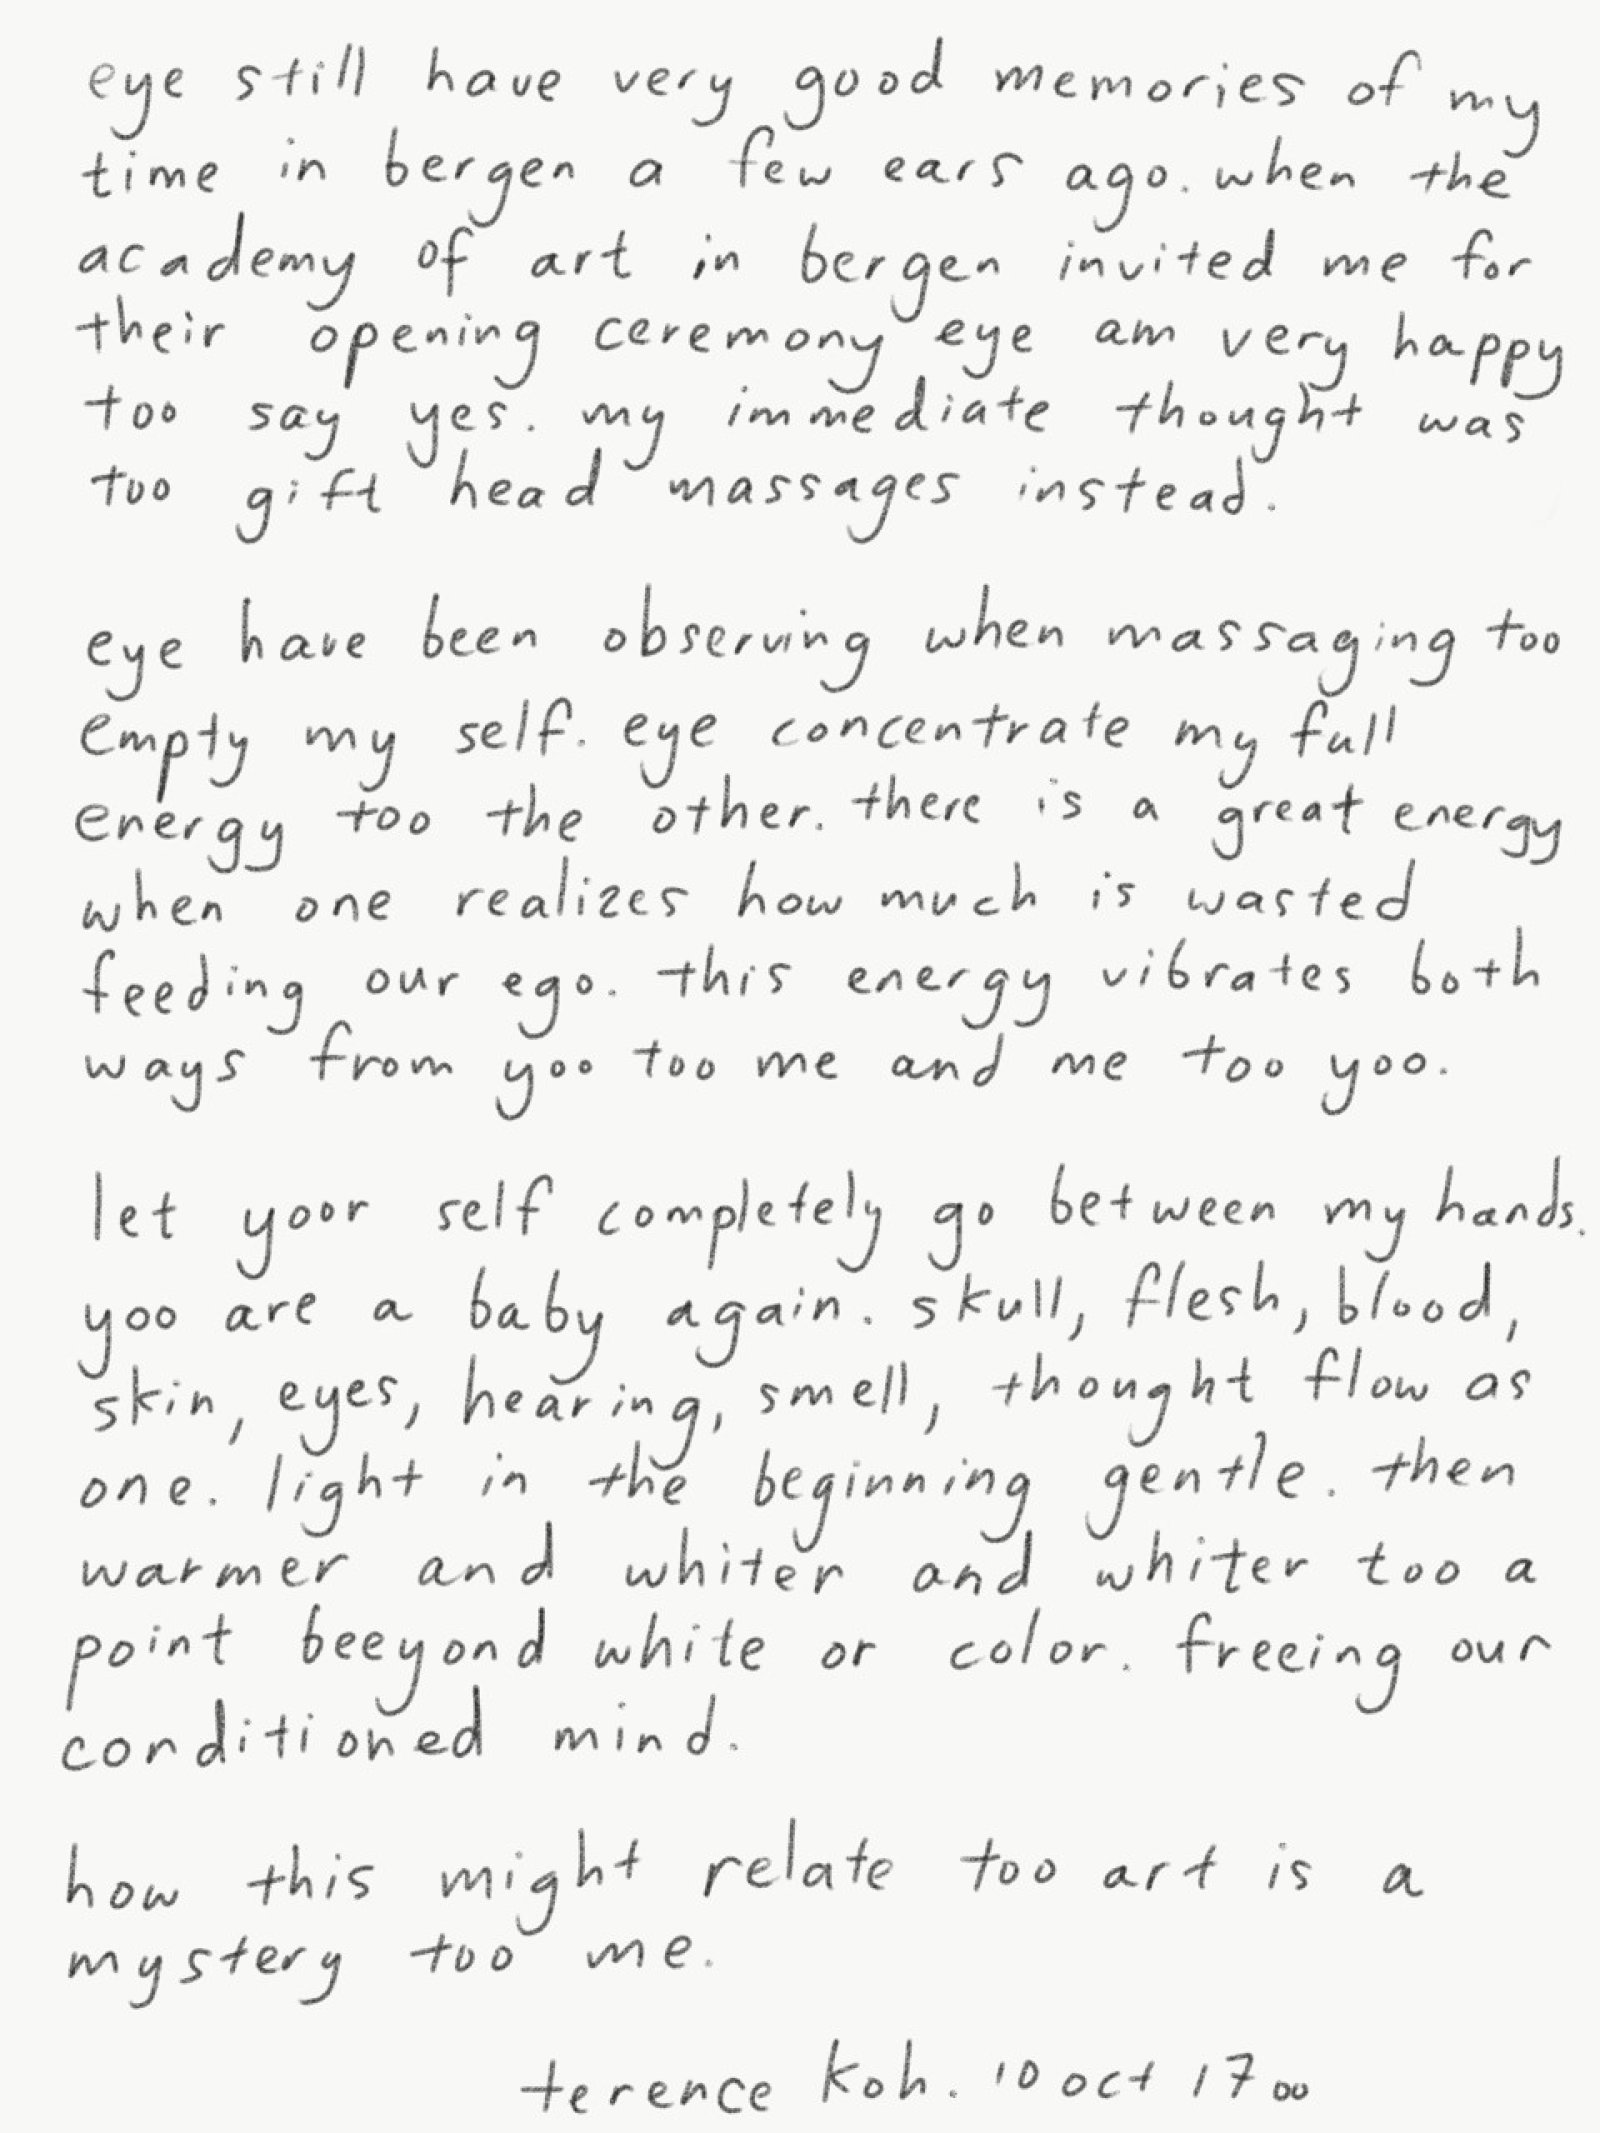 eye still have very good memories of my
time in bergen a few ears ago. when the
academy of art in bergen invited me for
their opening ceremony eye am very happy
too say yes. my immediate thought was
too gift head massages instead.
eye have been observing when massaging too
empty my self. eye concentrate my full
energy too the other. there is a great energy
when one realizes how much is wasted
feeding our ego. this energy vibrates both
ways from yoo too me and me too yoo.
let yoor self completely go between my hands.
yoo are a baby again. skull, flesh, blood,
skin, eyes, hearing, smell, thought flow as
one. light in the beginning gentle. then
warmer and whiter and whiter too a
point beeyond white or color. freeing our
conditioned mind.
how this might relate too art is a
mystery too me.
terence koh. 10 oct 1700